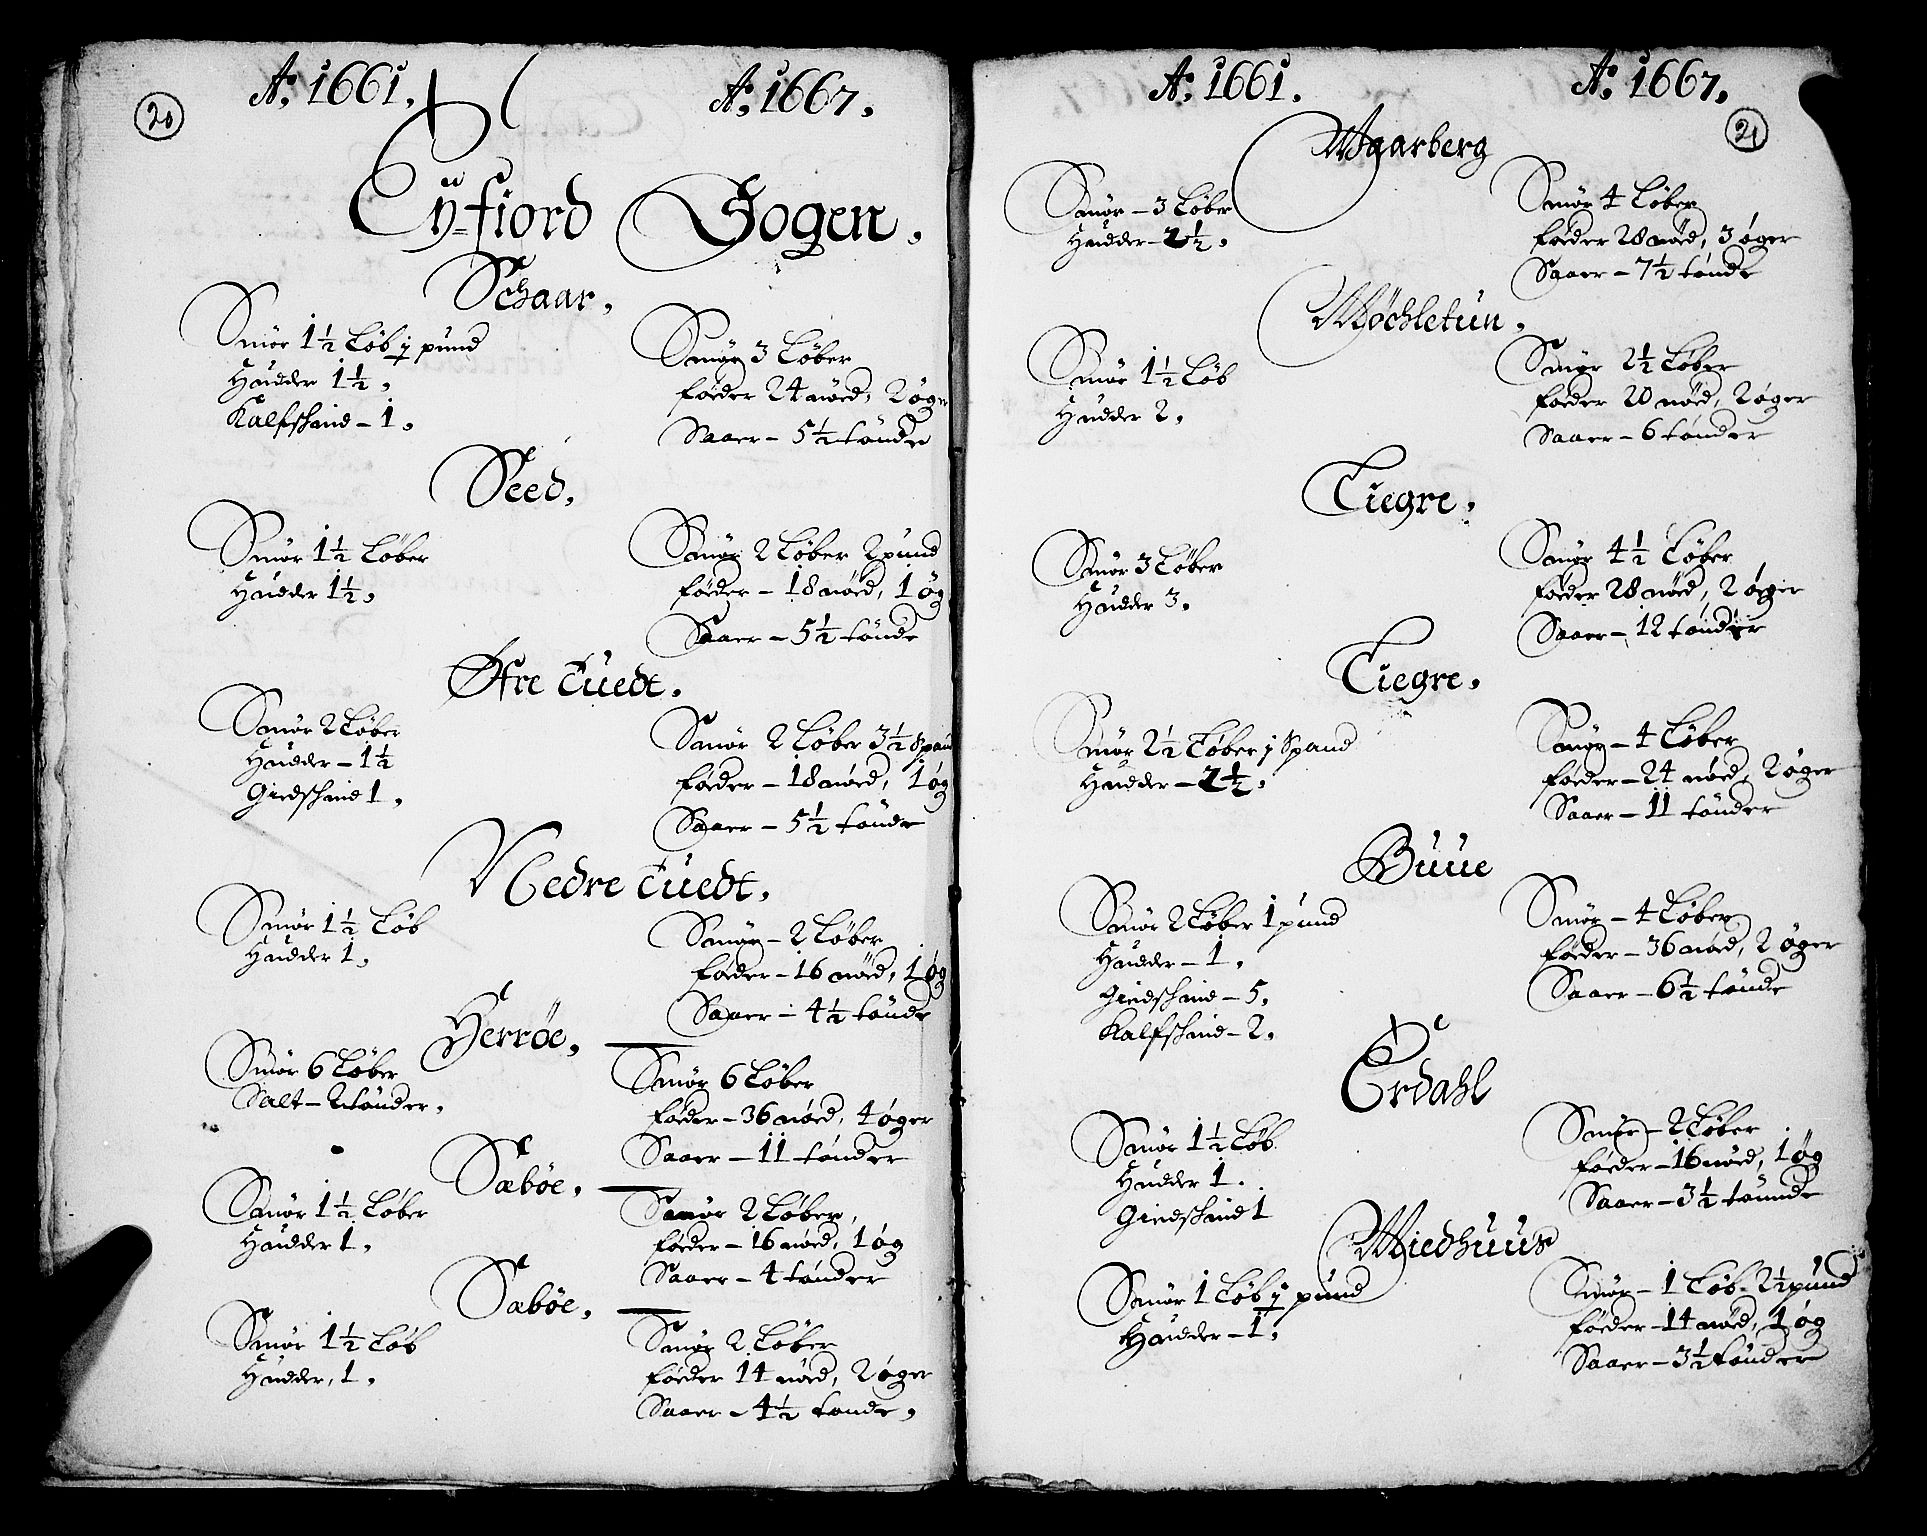 20
Aº. 1661. Aº. 1667.
Eÿ-fiord Sogen.
Schaar.
Smör 1½ Løb j pund
Hudder 1½.
Kalfschind – 1.
Smör 3 Løber
föeder 24 nöed, 2 øger
Saaer – 5½ tönde
Seed.
Smör 1½ Løber
Hudder 1½.
Smör 2 Løber 2 pund
föeder – 18 nöed, 1 øg
Saaer – 5½ tönde
Øfre Tuedt.
Smör 2 Løber
Hudder – 1½
Giedschind 1.
Smör 2 Løber 3½ Span
föeder – 18 nöed, 1 øg
Saaer – 5½ tönde
Nedre Tuedt.
Smör 1½ Løb
Hudder 1.
Smör – 2 Løber
föeder – 16 nöed, 1 øg
Saaer – 4½ tönde
Herröe.
Smör 6 Løber
Salt – 2 tönder.
Smör 6 Løber
föeder – 36 nöed, 4 øger
Saaer – 11 tönder
Sæböe.
Smör 1½ Løber
Hudder 1.
Smör 2 Løber,
föeder – 16 nöed, 1 øg
Saaer – 4 tönder
Sæböe.
Smör 1½ Løb
Hudder, 1.
Smör 2 Løber
föeder 14 nöed, 2 øger
Saaer – 4½ tönde.
Aº. 1661. Aº. 1667.
21
Waarberg
Smör – 3 Løber
Hudder – 2½.
Smör 4 Løber
föeder 28 nöed, 3 øger
Saaer – 7½ tönde
Møchletun.
Smör 1½ Løb
Hudder 2.
Smör 2½ Løber
föeder 20 nöed, 2 øger
Saaer – 6 tönder
Tiegre.
Smör 3 Løber
Hudder 3.
Smör 4½ Løber
föeder 28 nöed, 2 øger
Saaer – 12 tönder
Tiegre.
Smör 2½ Løber j Spand
Hudder – 2½.
Smör – 4 Løber
föeder – 24 nöed, 2 øger
Saaer – 11 tönder
Buue
Smör 2 Løber 1 pund
Hudder – 1.
Giedschind – 5.
Kalfschind – 2.
Smör – 4 Løber
föeder – 36 nöed, 2 øger
Saaer – 6½ tönde
Erdahl
Smör 1½ Løb
Hudder 1.
Giedschind 1
Smör – 2 Løber
föeder – 16 nöed, 1 øg
Saaer – 3½ tönde
Miedhuus
Smör 1 Løb j pund
Hudder – 1.
Smör – 1 Løb – 2½ pund
föeder – 14 nöed, 1 øg
Saaer – 3½ tönder